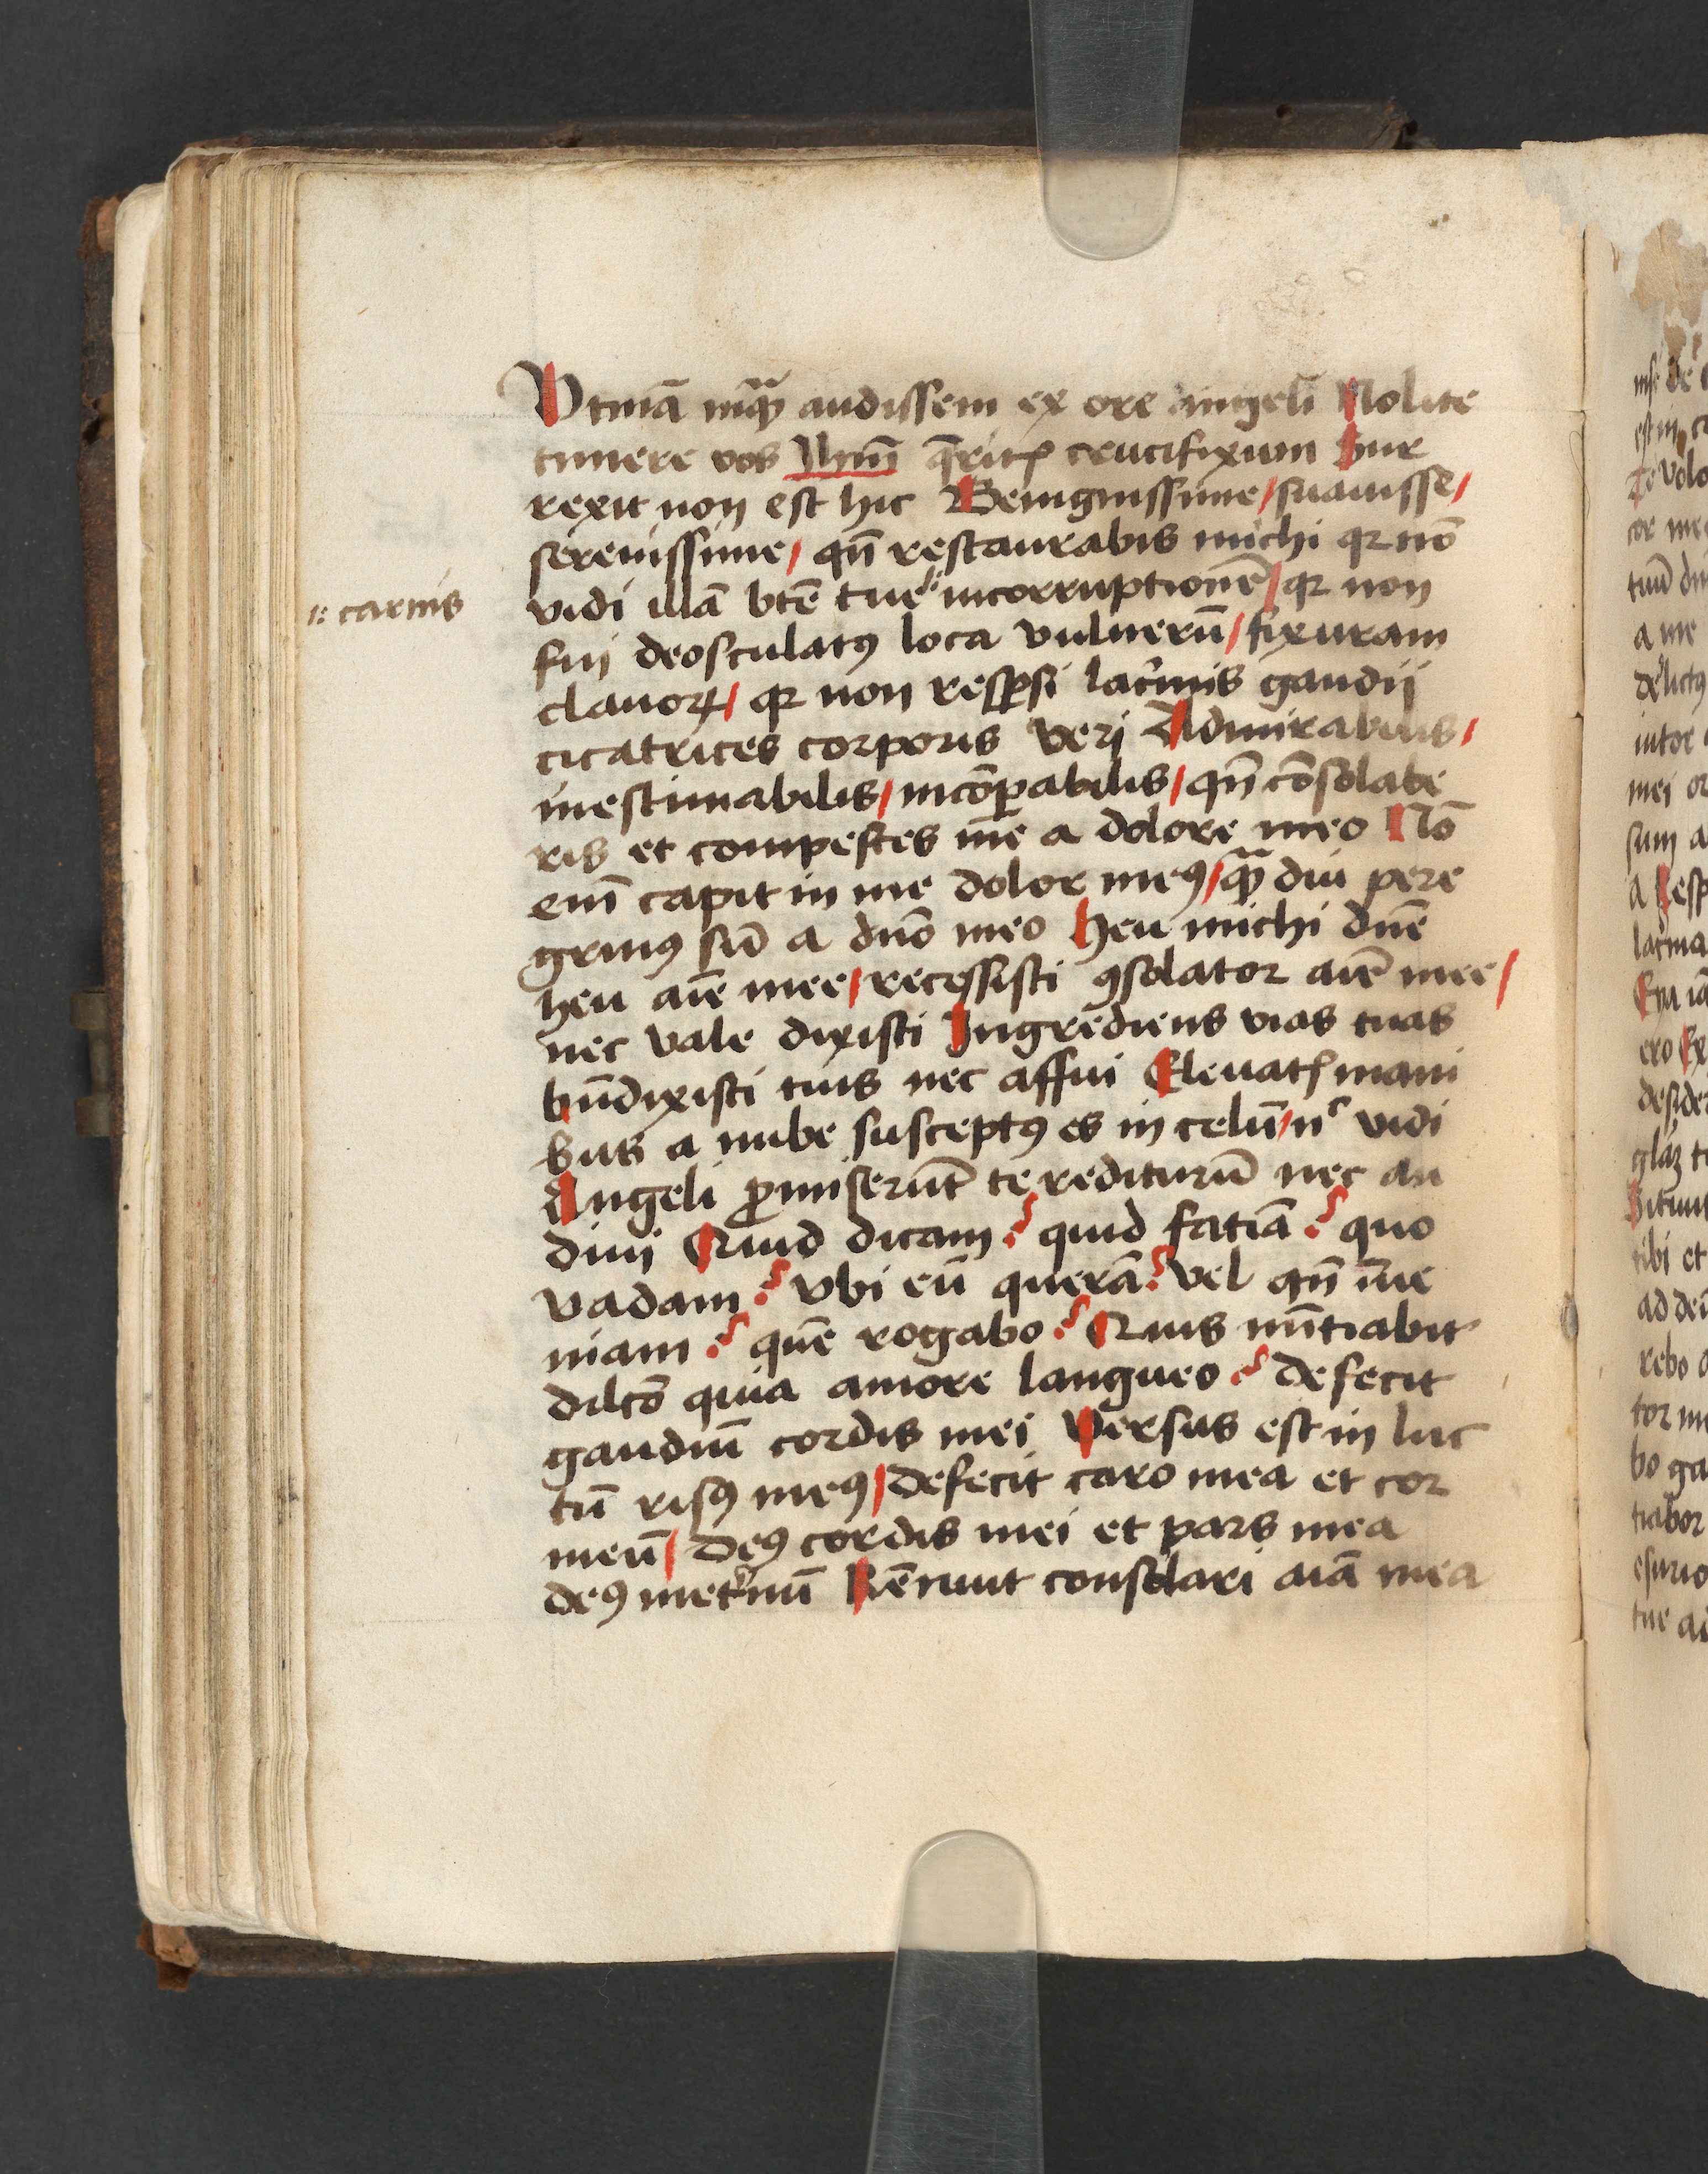 Vtinā inquā audissem ex ore angeli Nolite
timere vos Ihm̄ q̄ritis crucifixum Sur
rexit non est hic Benignissime / suauisse /
serenissime / qn̄ restaurabis michi qr nō
:: carnis
vidi illā btē tue incorruptionē / qr non
fui deosculatꝯ loca vulnerū / fixuram
clauoꝝ / qr non resꝑsi lacrimis gaudij
cicatrices corporis veri Admirabilis /
inestimabilis / incōꝑabilis / qn̄ cōsolabe
ris et compestes me a dolore meo Nō
enī capit in me dolor meꝯ / quā diu pere
grinꝯ sū a dnō meo Heu michi dnē
heu aīe mee / recessisti ꝯsolator aīe mee /
nec vale dixisti Ingrediens vias tuas
bn̄dixisti tuis nec affui Eleuatis mani
bus a nube susceptꝯ es in celū / nc vidi
Angeli ꝓmiserūt te rediturū nec au
diui Quid dicam? quid fatiā? quo
vadam? vbi eū querā? vel qn̄ inue
niam? quē rogabo? Quis nūtiabit
dilcō quia amore langueo? defecit
gaudiū cordis mei Versus est in luc
tū risꝯ meꝯ / defecit caro mea et cor
meū / deꝯ cordis mei et pars mea
deꝯ in eternū Rēnuit consolari aīa mea